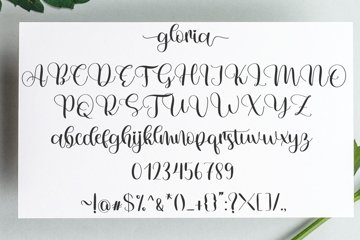 gloria
ABCDEFGHIJKLMNO
PQRSTUVWXYZ
abcdefghijklmnopqrstuvwxyz
0123456789
~!@#$%^&*()_+{}":?X[]/.,